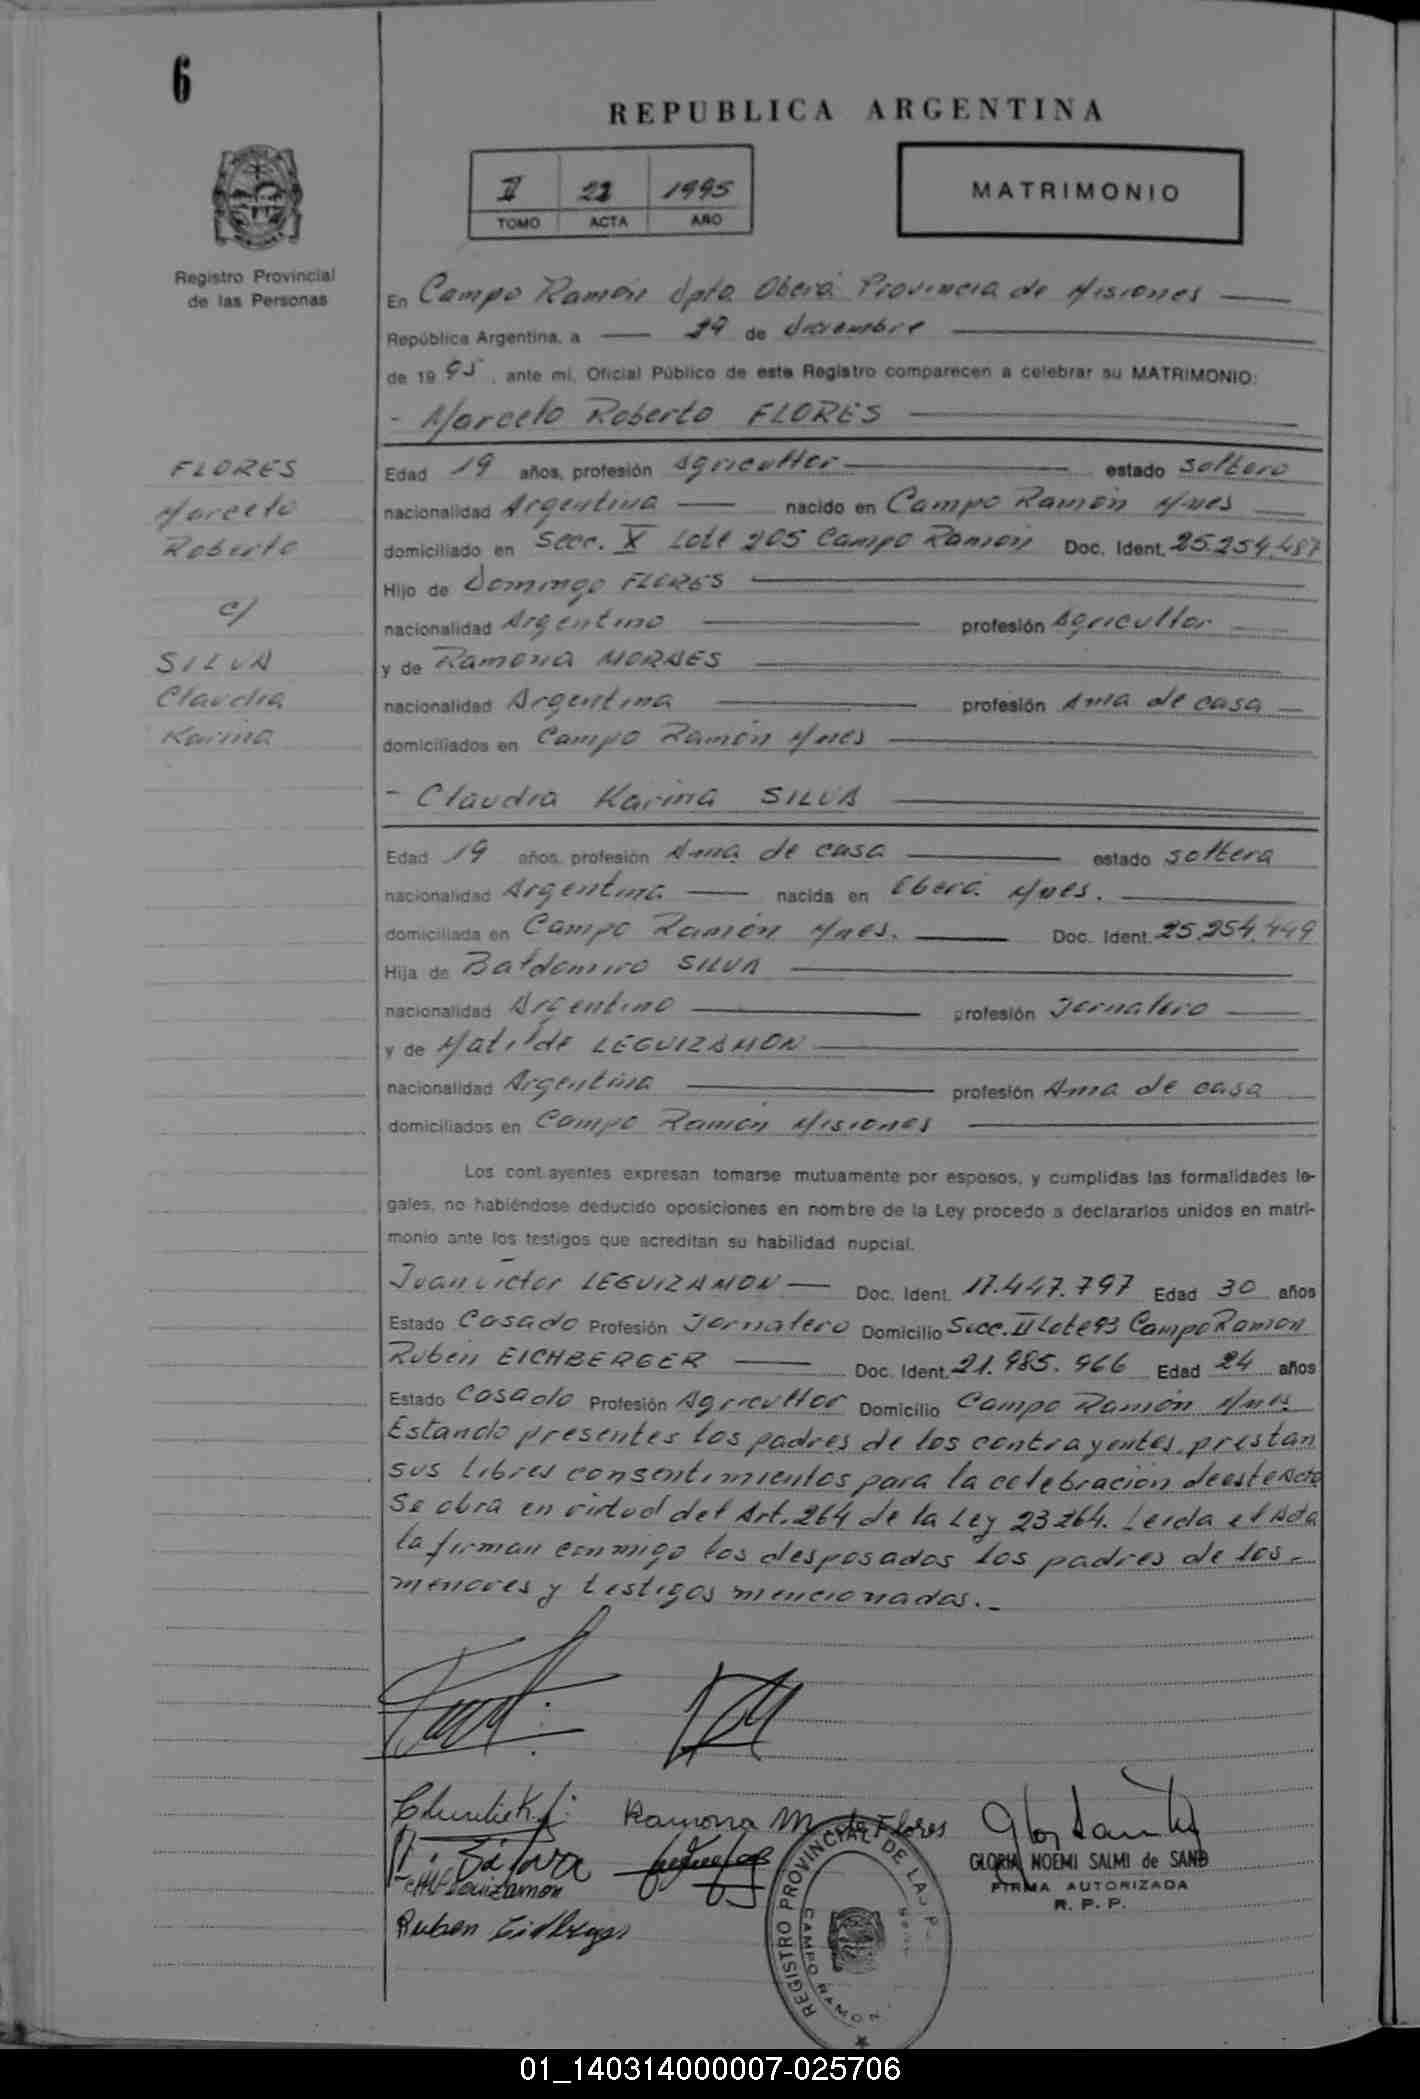 6
REPUBLICA ARGENTINA
II 22 1995
TOMO ACTA AÑO
MATRIMONIO
Registro Provincial
de las Personas
En Campo Ramón Dpto Oberá Provincia de Misiones
República Argentina, a 29 de diciembre
de 1995, ante mi, Oficial Público de este Registro comparecen a celebrar su MATRIMONIO:
- Marcelo Roberto FLORES
FLORES
Marcelo
Roberto
c/
SILVA
Claudia
Karina
Edad 19 años, profesión Agricultor estado soltero
nacionalidad Argentina nacido en Campo Ramón Mnes
domiciliado en Secc. X Lote 205 Campo Ramón Doc. Ident. 25.254.487
Hijo de Domingo FLORES
nacionalidad Argentino profesión Agricultor
y de Ramona MORAES
nacionalidad Argentina profesión Ama de casa
domiciliados en Campo Ramón Mnes
- Claudia Karina SILVA
Edad 19 años, profesión Ama de casa estado soltera
nacionalidad Argentina nacida en Oberá Mnes.
domiciliada en Campo Ramón Mnes. Doc. Ident. 25.254.449
Hija de Baldomiro SILVA
nacionalidad Argentino profesión Jornalero
y de Matilde LEGUIZAMON
nacionalidad Argentina profesión Ama de casa
domiciliados en Campo Ramón Misiones
Los cont ayentes expresan tomarse mutuamente por esposos, y cumplidas las formalidades le-
gales, no habiéndose deducido oposiciones en nombre de la Ley procedo a declararlos unidos en matri-
monio ante los testigos que acreditan su habilidad nupcial.
Juan Victor LEGUIZAMON Doc. Ident. 17.447.797 Edad 30 años
Estado Casado Profesión Jornalero Domicilio Secc. II Lote 93 Campo Ramon
Rubén EICHBERGER Doc. Ident. 21.985.966 Edad 24 años
Estado Casado Profesión Agricultor Domicilio Campo Ramón Mnes
Estando presentes los padres de los contrayentes, prestan
sus libres consentimientos para la celebración de este Acto
Se obra en virtud del Art. 264 de la Ley 23264. Leida el Acta
la firman conmigo los desposados los padres de los
menores y testigos mencionados.-
Ramona M de Flores
Silva
Leguizamon
Ruben
GLORIA NOEMI SALMI de SAND
FIRMA AUTORIZADA
R. P. P.
REGISTRO PROVINCIAL DE LAS P
CAMPO RAMON
01_140314000007-025706